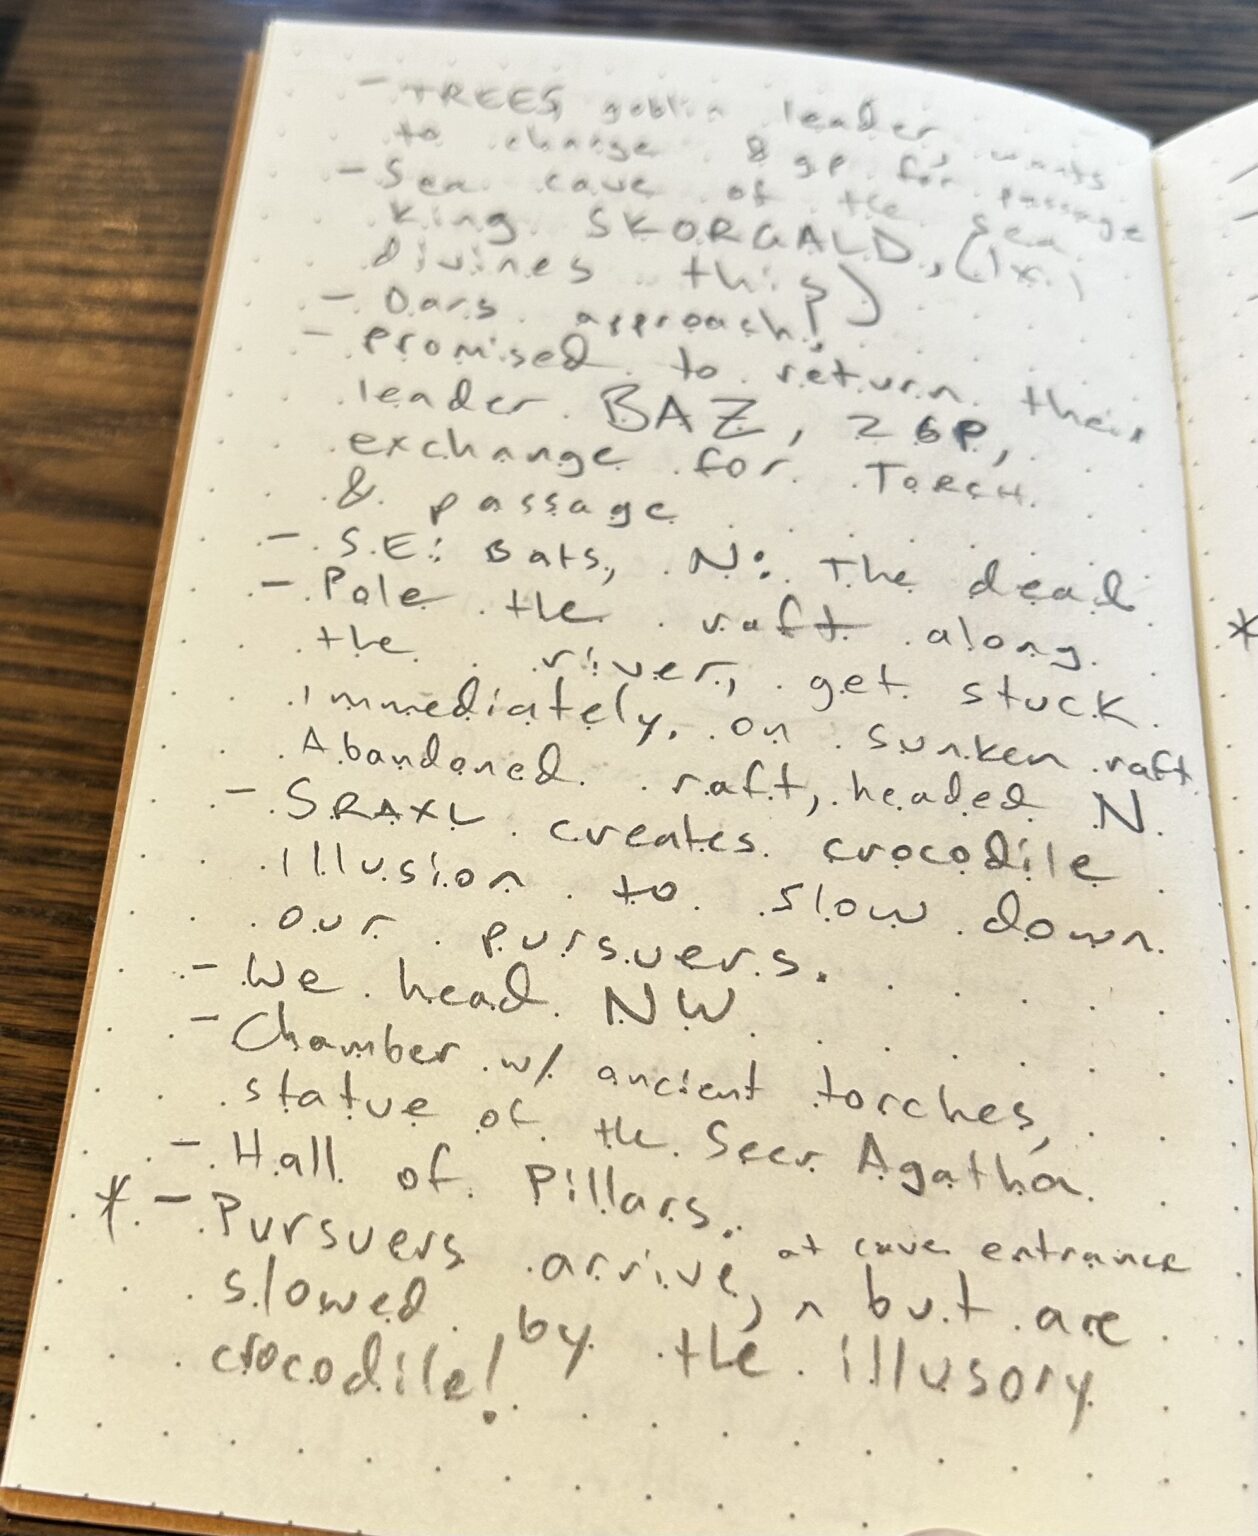 - TREES, goblin leader, wants
to charge 8 gp for passage
- Sea cave of the Sea
King SKORGALD, (1x.)
divines this)
- Oars approach!
- promised to return their
leader BAZ, 2 GP,
exchange for TORCH
& passage
- S.E: Bats, N: The dead
- Pole the raft along
the river, get stuck
immediately, on sunken raft
Abandoned raft, headed N.
- SRAXL creates crocodile
illusion to slow down
our pursuers.
- We head NW
- Chamber w/ ancient torches,
statue of the Seer Agatha
- Hall of Pillars.
* - Pursuers arrive, ^ at cave entrance but are
slowed by the illusory
crocodile!
*